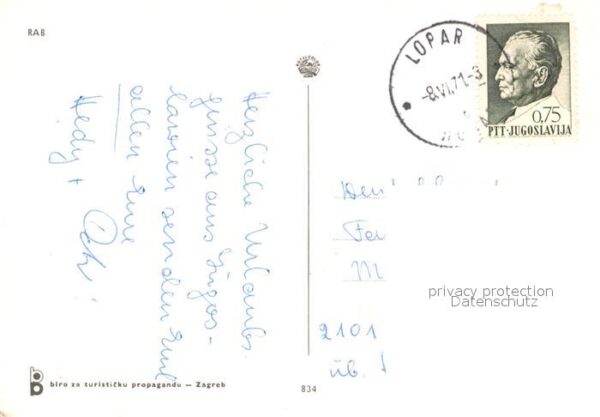 RAB
LOPAR
-8.VI.71.-3
0,75
PTT-JUGOSLAVIJA
Herzliche Urlaubs-
grüsse aus Jugos-
lawien senden Euch
allen Eure
Hedy +
privacy protection
Datenschutz
2101
üb.
biro za turističku propagandu — Zagreb
834